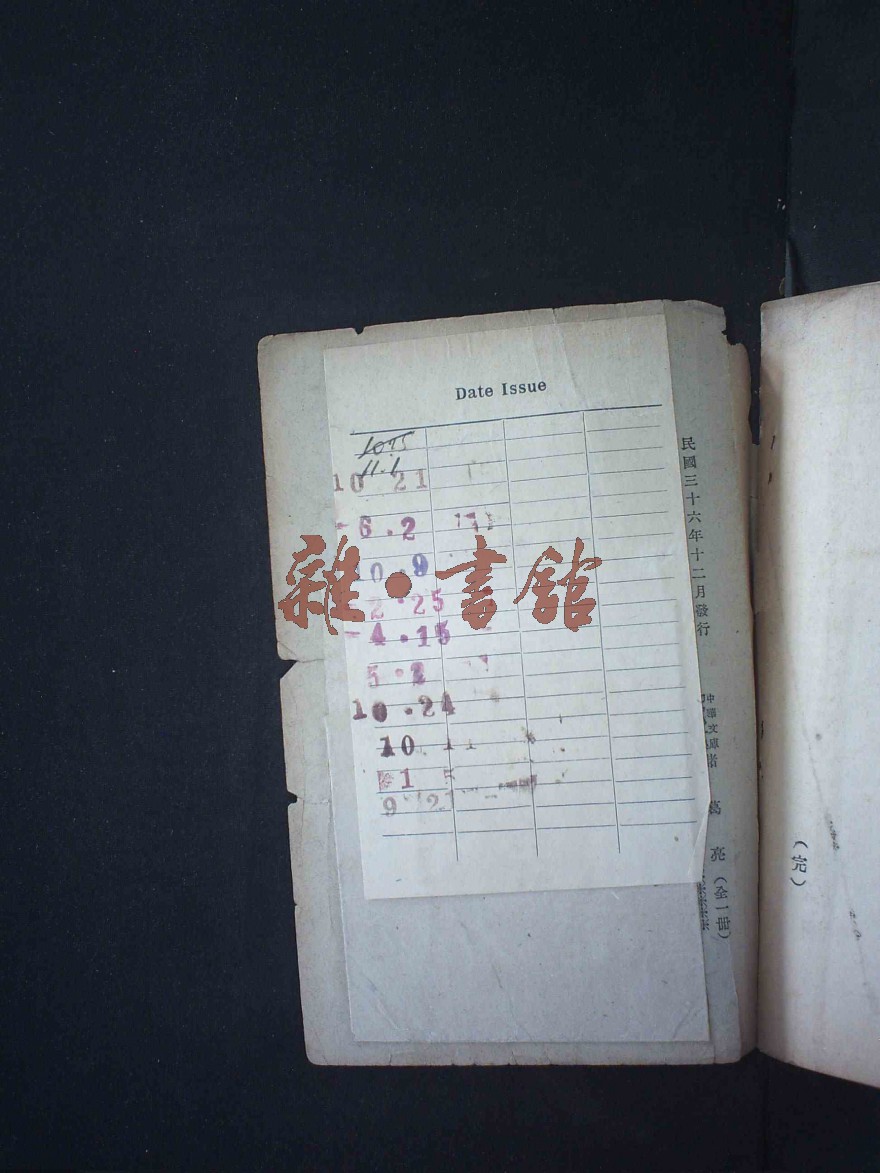 Date Issue
1075
11.1
10 21
-6.2
10.9
-2.25
-4.15
5.2
10.24
10
1
9 21
雜·書館
民國三十六年十二月發行
中華文庫
者 葛 亮
(全一冊)
(完)